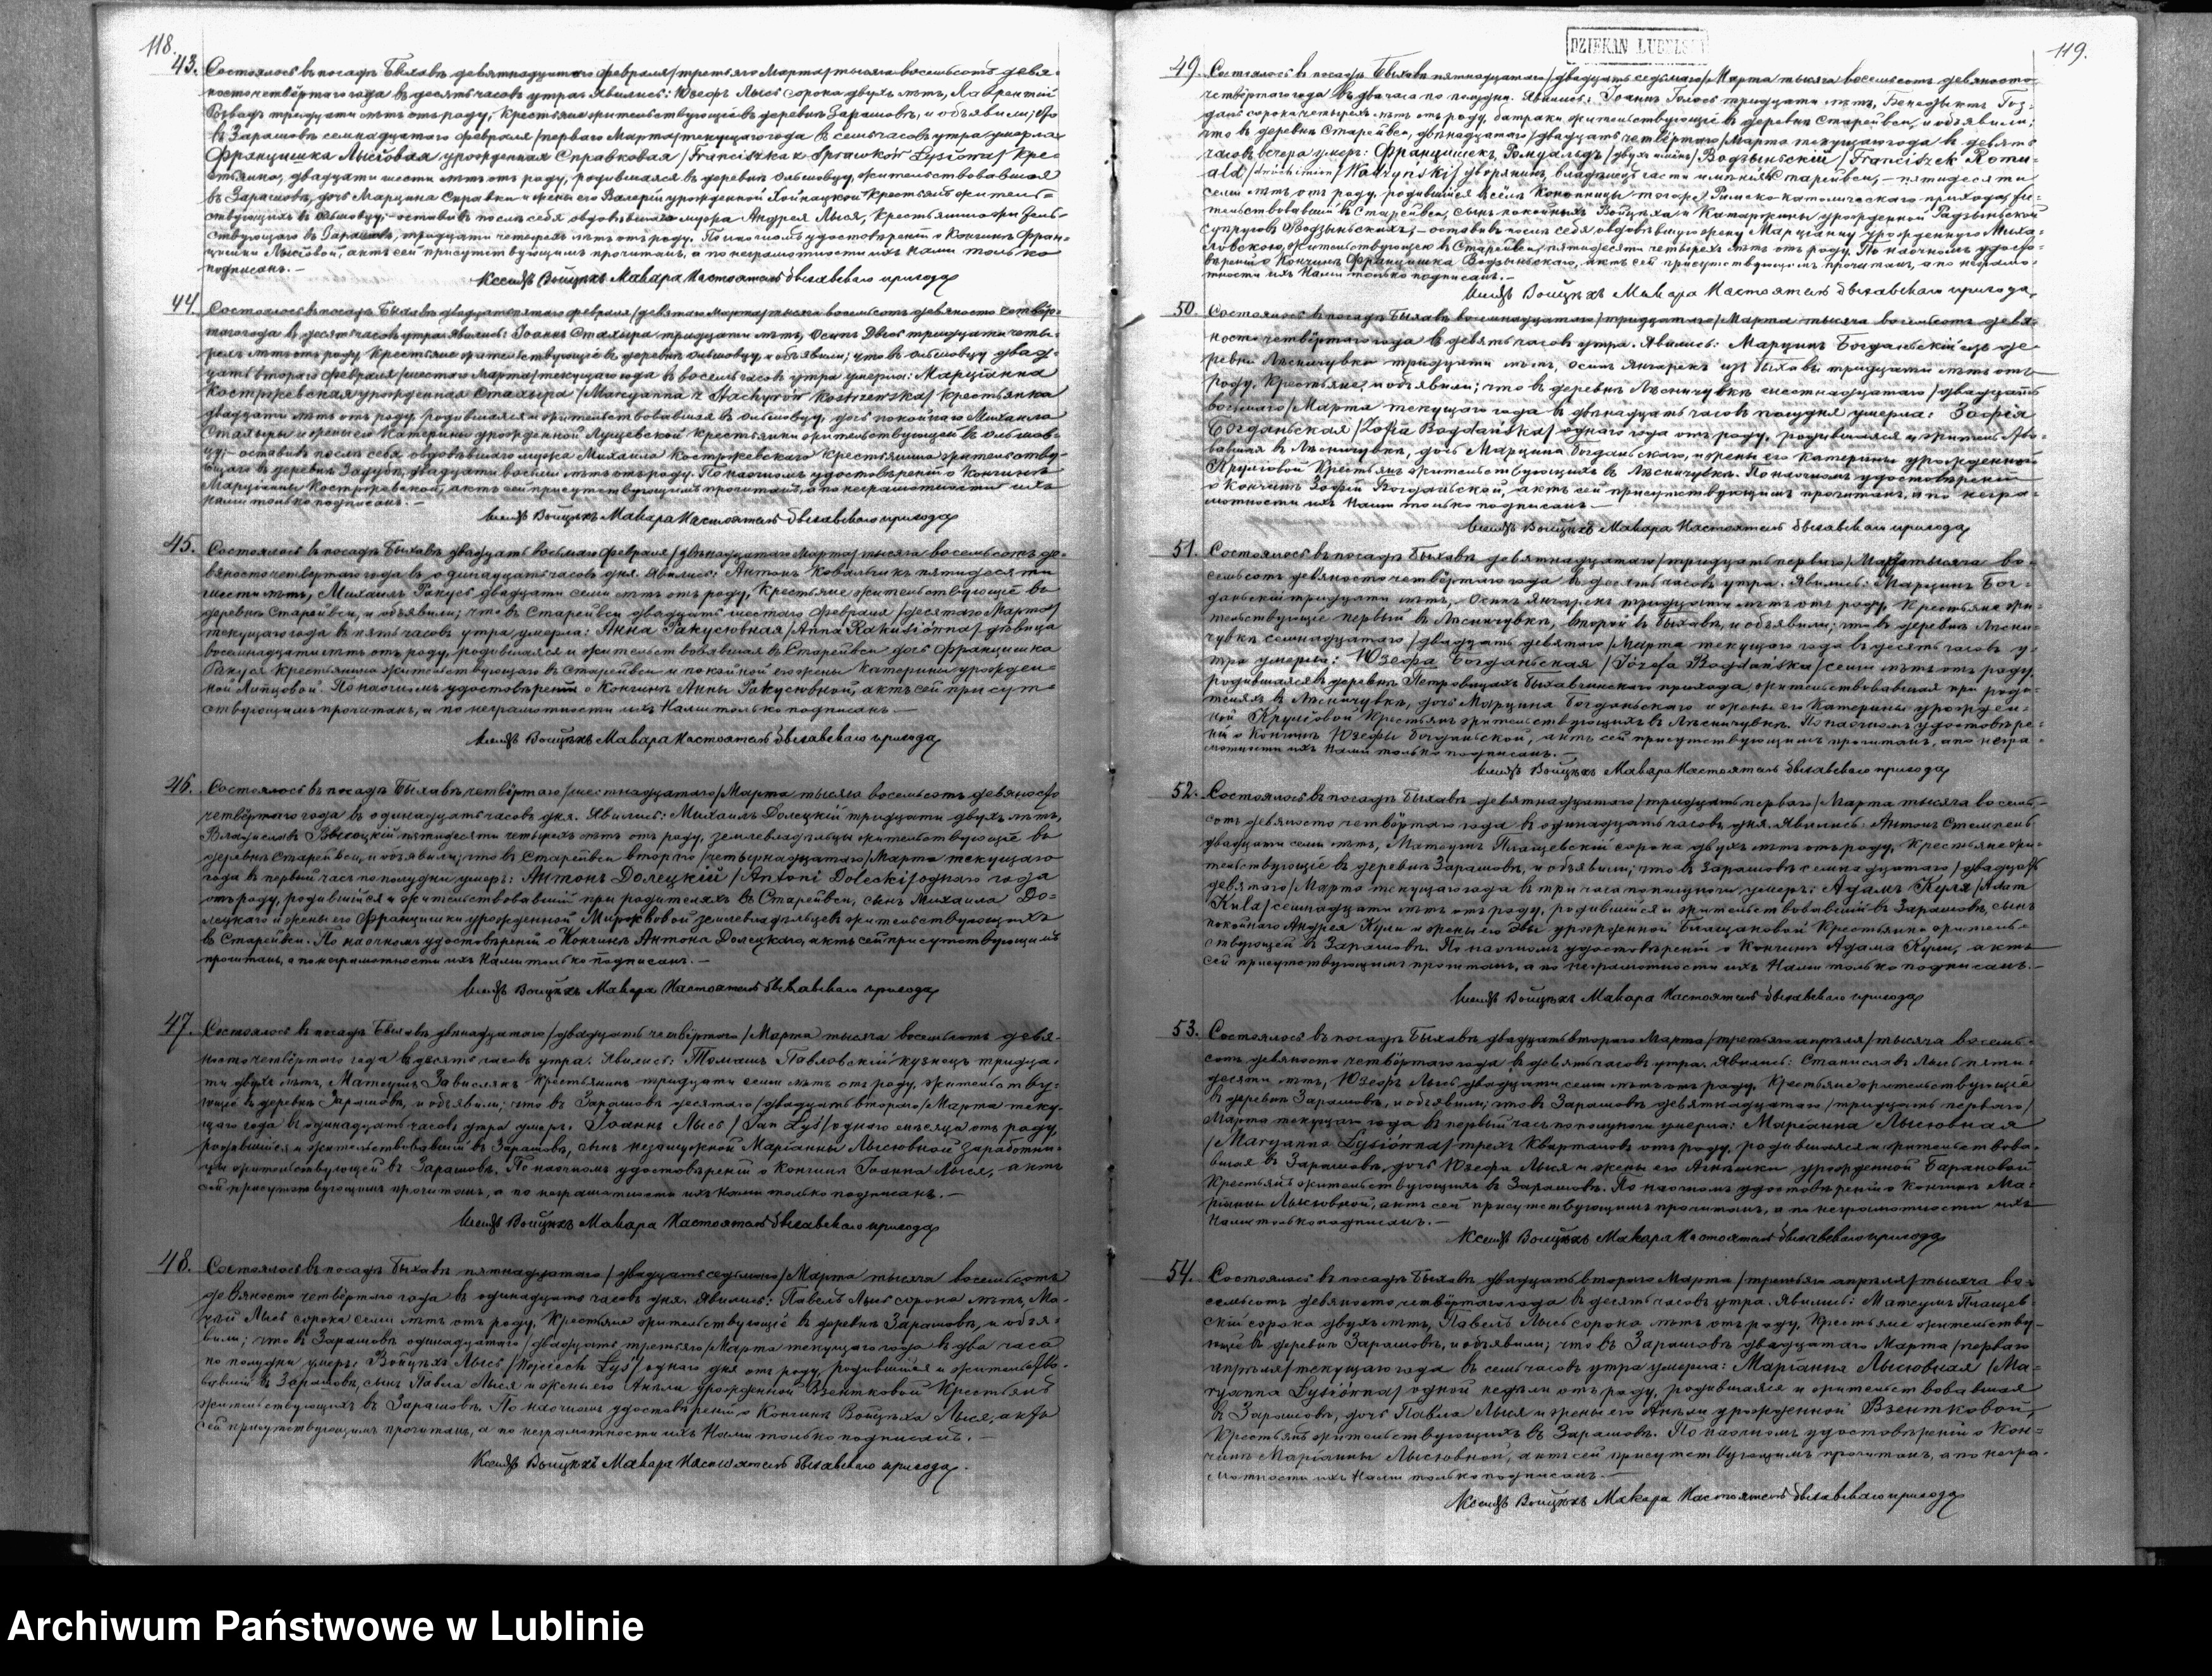 118.
43. Состоялось въ посадѣ Быхавѣ девятнадцатаго февраля/третьяго Марта/тысяча восемьсотъ девя-
носточетвёртаго года въ десять часовъ утра. Явились: Юзефъ Лысь сорока двухъ лѣтъ, Лаврентій
тридцати лѣтъ отъ роду, крестьяне жительствующіе въ деревнѣ Зарашовѣ, и объявили; что
въ Зарашовѣ семнадцатаго февраля/перваго Марта/текущаго года въ семь часовъ утра умерла
Францишка Лысіовая урожденная Справковая/Franciszka z Sprawków Lysiowa/кре-
стьянка, двадцати шести лѣтъ отъ роду, родившаяся въ деревнѣ Ольшовцу, жительствовавшая
въ Зарашовѣ, дочь Марцина Справки и жены его Валеріи урожденной Хойнацкой крестьянъ житель-
ствующихъ въ Ольшовцу; оставивъ послѣ себя овдовѣвшаго мужа Андрея Лыся, крестьянина жи-
ствующаго въ Зарашовѣ, тридцати четырехъ лѣтъ отъ роду. По наочномъ удостовѣреніи о Кончинѣ Фран-
цишки Лысіовой, актъ сей присутствующимъ прочитанъ, а по неграмотности ихъ Нами только
подписанъ.—
Ксендзъ Войцѣхъ Макара Настоятель Быхавскаго прихода
44. Состоялось въ посадѣ Быхавѣ двадцать пятаго февраля/девятаго Марта/тысяча восемьсотъ девяносто четвёр-
таго года въ десять часовъ утра. Явились: Іоаннъ Стахыра тридцати лѣтъ, Осипъ Двось тридцати четы-
рехъ лѣтъ отъ роду, крестьяне жительствующіе въ деревнѣ Ольшовцу, и объявили; что въ Ольшовцу двад-
цать втораго февраля/шестаго Марта/текущаго года въ восемь часовъ утра умерла: Марціанна
Костржевская урожденная Стахыра/Maryanna z Stachyrów Kostrzewska/крестьянка
двадцати лѣтъ отъ роду, родившаяся и жительствовавшая въ Ольшовцу, дочь покойнаго Михаила
Стахыры и жены его Катерины урожденной Лущевской крестьянки жительствующей въ Ольшов-
цу;— оставивъ послѣ себя овдовѣвшаго мужа Михаила Костржевскаго крестьянина жительству-
ющаго въ деревнѣ Задубѣ, двадцати восьми лѣтъ отъ роду. По наочномъ удостовѣреніи о Кончинѣ
Марціанны Костржевской, актъ сей присутствующимъ прочитанъ, а по неграмотности ихъ
Нами только подписанъ.—
Ксендзъ Войцѣхъ Макара Настоятель Быхавскаго прихода
45. Состоялось въ посадѣ Быхавѣ двадцать восьмаго февраля/двѣнадцатаго Марта/тысяча восемьсотъ де-
вяносточетвёртаго года въ одинадцать часовъ дня. Явились: Антонъ Ковальчикъ пятидесяти
шести лѣтъ, Михаилъ Ракусь двадцати семи лѣтъ отъ роду, крестьяне жительствующіе въ
деревнѣ Старейвси, и объявили; что въ Старейвси двадцать шестаго февраля/десятаго Марта/
текущаго года въ пять часовъ утра умерла: Анна Ракусювная/Anna Rakusiówna/дѣвица
восемнадцати лѣтъ отъ роду, родившаяся и жительствовавшая въ Старейвси дочь Францишка
Ракуся крестьянина жительствующаго въ Старейвси и покойной его жены Катерины урожден-
ной Липцовой. По наочномъ удостовѣреніи о Кончинѣ Анны Ракусювной, актъ сей присут-
ствующимъ прочитанъ, а по неграмотности ихъ Нами только подписанъ.—
Ксендзъ Войцѣхъ Макара Настоятель Быхавскаго прихода
46. Состоялось въ посадѣ Быхавѣ четвёртаго/шестнадцатаго/Марта тысяча восемьсотъ девяносто
четвёртаго года въ одинадцать часовъ дня. Явились: Михаилъ Долецкій тридцати двухъ лѣтъ,
Владиславъ Высоцкій пятидесяти четырехъ лѣтъ отъ роду, землевладѣльцы жительствующіе въ
деревнѣ Старейвси, и объявили; что въ Старейвси втораго/четырнадцатаго/Марта текущаго
года въ первый часъ по полудни умеръ: Антонъ Долецкій/Antoni Dolecki/одного года
отъ роду, родившійся и жительствовавшій при родителяхъ въ Старейвси, сынъ Михаила До-
лецкаго и жены его Францишки урожденной землевладѣльцевъ жительствующихъ
въ Старейвси. По наочномъ удостовѣреніи о Кончинѣ Антона Долецкаго, актъ сей присутствующимъ
прочитанъ, а по неграмотности ихъ Нами только подписанъ.—
Ксендзъ Войцѣхъ Макара Настоятель Быхавскаго прихода
47. Состоялось въ посадѣ Быхавѣ двѣнадцатаго/двадцать четвёртаго/Марта тысяча восемьсотъ девя-
носточетвёртаго года въ десять часовъ утра. Явились: Томашъ Павловскій кузнецъ тридца-
ти двухъ лѣтъ, Матеушъ Завислякъ крестьянинъ тридцати семи лѣтъ отъ роду, жительству-
ющіе въ деревнѣ Зарашовѣ, и объявили; что въ Зарашовѣ десятаго/двадцать втораго/Марта теку-
щаго года въ одинадцать часовъ утра умеръ: Іоаннъ Лысь/Jan Lyś/одного мѣсяца отъ роду,
родившійся и жительствовавшій въ Зарашовѣ, сынъ незамужной Маріанны Лысювной заработни-
цы жительствующей въ Зарашовѣ. По наочномъ удостовѣреніи о Кончинѣ Іоанна Лыся, актъ
сей присутствующимъ прочитанъ, а по неграмотности ихъ Нами только подписанъ.—
Ксендзъ Войцѣхъ Макара Настоятель Быхавскаго прихода
48. Состоялось въ посадѣ Быхавѣ пятнадцатаго/двадцать седьмаго/Марта тысяча восемьсотъ
девяносто четвёртаго года въ одинадцать часовъ дня. Явились: Павелъ Лысь сорока лѣтъ, Ма-
цѣй Лысь сорока семи лѣтъ отъ роду, крестьяне жительствующіе въ деревнѣ Зарашовѣ, и объя-
вили; что въ Зарашовѣ одинадцатаго/двадцать третьяго/Марта текущаго года въ два часа
по полудни умеръ: Войцѣхъ Лысь/Wojciech Lyś/одного дня отъ роду, родившійся и жительство-
вавшій въ Зарашовѣ, сынъ Павла Лыся и жены его Анѣли урожденной Взентковой крестьянъ
жительствующихъ въ Зарашовѣ. По наочномъ удостовѣреніи о Кончинѣ Войцѣха Лыся, актъ
сей присутствующимъ прочитанъ, а по неграмотности ихъ Нами только подписанъ.—
Ксендзъ Войцѣхъ Макара Настоятель Быхавскаго прихода.
DZIEKAN LUBELSKI
119.
49. Состоялось въ посадѣ Быхавѣ пятнадцатаго/двадцать седьмаго/Марта тысяча восемьсотъ девяносто
четвёртаго года въ два часа по полудни. Явились: Іоаннъ Голось тридцати лѣтъ, Бенедыктъ Гоз-
дань сорока четырехъ лѣтъ отъ роду, батраки жительствующіе въ деревнѣ Старейвси, и объявили;
что въ деревнѣ Старейвси, двѣнадцатаго/двадцать четвёртаго/Марта текущаго года въ девять
часовъ вечера умеръ: Францишекъ Ромуальдъ/двухъ имёнъ/Водзыньскій/Franciszek Romu-
ald/dwóch imion/Wodzyński/дворянинъ, владѣлецъ части имѣнія Старейвси,— пятидесяти
семи лѣтъ отъ роду, родившійся въ селѣ Конопницы тогоже Римско-католическаго прихода, жи-
тельствовавшій въ Старейвси, сынъ покойныхъ Войцѣха и Катаржины урожденной Радзыньской
супруговъ Водзыньскихъ;— оставивъ послѣ себя овдовѣвшую жену Марціанну урожденную Миха-
ловскою, жительствующею въ Старейвси, пятидесяти четырехъ лѣтъ отъ роду. По наочномъ удосто-
вѣреніи о Кончинѣ Францишка Водзыньскаго, актъ сей присутствующимъ прочитанъ, а по неграмо-
тности ихъ Нами только подписанъ.—
Ксендзъ Войцѣхъ Макара Настоятель Быхавскаго прихода,
50. Состоялось въ посадѣ Быхавѣ восемнадцатаго/тридцатаго/Марта тысяча восемьсотъ девя-
ностo четвёртаго года въ девять часовъ утра. Явились: Марцинъ Богданьскій изъ де-
ревни Лѣсничувки тридцати лѣтъ, Осипъ Янгарекъ изъ Быхавы тридцати лѣтъ отъ
роду, крестьяне, и объявили; что въ деревнѣ Лѣсничувкѣ шестнадцатаго/двадцать
восьмаго/Марта текущаго года въ двѣнадцать часовъ полудня умерла: Зофія
Богданьская/Zofia Bogdańska/одного года отъ роду, родившаяся и жительство-
вавшая въ Лѣсничувкѣ, дочь Марцина Богданьскаго, и жены его Катерины урожденной
Круліовой крестьянъ жительствующихъ въ Лѣсничувкѣ. По наочномъ удостовѣреніи
о Кончинѣ Зофіи Богданьской, актъ сей присутствующимъ прочитанъ, а по негра-
мотности ихъ Нами только подписанъ.—
Ксендзъ Войцѣхъ Макара Настоятель Быхавскаго прихода
51. Состоялось въ посадѣ Быхавѣ девятнадцатаго/тридцать перваго/Марта тысяча во-
семьсотъ девяносто четвёртаго года въ десять часовъ утра. Явились: Марцинъ Бог-
даньскій тридцати лѣтъ,— Осипъ Янгарекъ тридцати лѣтъ отъ роду, крестьяне жи-
тельствующіе первый въ Лѣсничувкѣ, второй въ Быхавѣ, и объявили; что въ деревнѣ Лѣсни-
чувкѣ семнадцатаго/двадцать девятаго/Марта текущаго года въ десять часовъ у-
тра умерла: Юзефа Богданьская/Józefa Bogdańska/семи лѣтъ отъ роду,
родившаяся въ деревнѣ Петровицахъ Быхавчинскаго прихода, жительствовавшая при роди-
теляхъ въ Лѣсничувкѣ, дочь Марцина Богданьскаго и жены его Катерины урожден-
ной Круліовой крестьянъ жительствующихъ въ Лѣсничувкѣ. По наочномъ удостовѣре-
ніи о Кончинѣ Юзефы Богданьской, актъ сей присутствующимъ прочитанъ, а по негра-
мотности ихъ Нами только подписанъ.—
Ксендзъ Войцѣхъ Макара Настоятель Быхавскаго прихода
52. Состоялось въ посадѣ Быхавѣ девятнадцатаго/тридцать перваго/Марта тысяча восемь-
сотъ девяносто четвёртаго года въ одинадцать часовъ дня. Явились: Антонъ Стемпень
двадцати семи лѣтъ, Матеушъ Плащевскій сорока двухъ лѣтъ отъ роду, крестьяне жи-
тельствующіе въ деревнѣ Зарашовѣ, и объявили; что въ Зарашовѣ семнадцатаго/двадцать
девятаго/Марта текущаго года въ три часа по полуночи умеръ: Адамъ Куля/Adam
Kula/семнадцати лѣтъ отъ роду, родившійся и жительствовавшій въ Зарашовѣ, сынъ
покойнаго Андрея Кули и жены его Эвы урожденной крестьянки житель-
ствующей въ Зарашовѣ. По наочномъ удостовѣреніи о Кончинѣ Адама Кули, актъ
сей присутствующимъ прочитанъ, а по неграмотности ихъ Нами только подписанъ.—
Ксендзъ Войцѣхъ Макара Настоятель Быхавскаго прихода
53. Состоялось въ посадѣ Быхавѣ двадцать втораго Марта/третьяго апрѣля/тысяча восемь-
сотъ девяносто четвёртаго года въ девять часовъ утра. Явились: Станиславъ Лысь пяти-
десяти лѣтъ, Юзефъ Лысь двадцати семи лѣтъ отъ роду, крестьяне жительствующіе
въ деревнѣ Зарашовѣ, и объявили; что въ Зарашовѣ девятнадцатаго/тридцать перваго/
Марта текущаго года въ первый часъ по полуночи умерла: Маріанна Лысювная
/Maryanna Lysiówna/трехъ кварталовъ отъ роду, родившаяся и жительствова-
вшая въ Зарашовѣ, дочь Юзефа Лыся и жены его Агнѣшки, урожденной Барановой
крестьянъ жительствующихъ въ Зарашовѣ. По наочномъ удостовѣреніи о Кончинѣ Ма-
ріанны Лысювной, актъ сей присутствующимъ прочитанъ, а по неграмотности ихъ
Нами только подписанъ.—
Ксендзъ Войцѣхъ Макара Настоятель Быхавскаго прихода
54. Состоялось въ посадѣ Быхавѣ двадцать втораго Марта/третьяго апрѣля/тысяча во-
семьсотъ девяносто четвёртаго года въ десять часовъ утра. Явились: Матеушъ Плащев-
скій сорока двухъ лѣтъ, Павелъ Лысь сорока лѣтъ отъ роду, крестьяне жительству-
ющіе въ деревнѣ Зарашовѣ, и объявили; что въ Зарашовѣ двадцатаго Марта/перваго
апрѣля/текущаго года въ семь часовъ утра умерла: Маріанна Лысювная/Ma-
ryanna Lysiówna/одной недѣли отъ роду, родившаяся и жительствовавшая
въ Зарашовѣ, дочь Павла Лыся и жены его Анѣли урожденной Взентковой,
крестьянъ жительствующихъ въ Зарашовѣ. По наочномъ удостовѣреніи о Кон-
чинѣ Маріанны Лысювной, актъ сей присутствующимъ прочитанъ, а по негра-
мотности ихъ Нами только подписанъ.—
Ксендзъ Войцѣхъ Макара Настоятель Быхавскаго прихода
Archiwum Państwowe w Lublinie